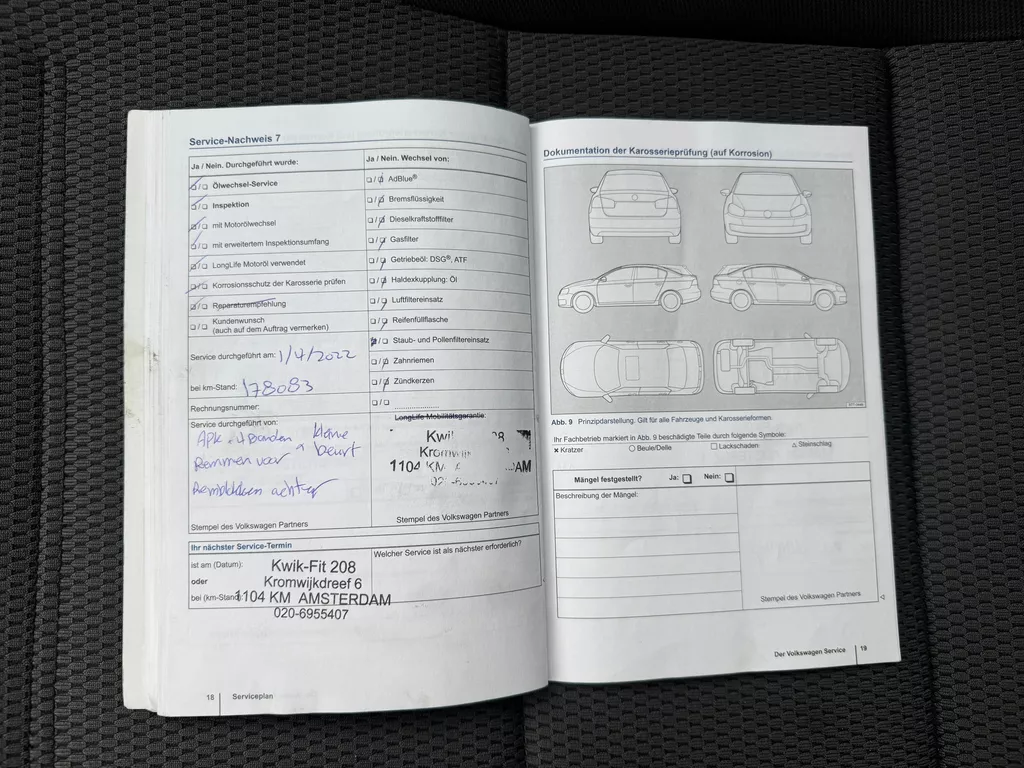 Service-Nachweis 7
Ja / Nein. Durchgeführt wurde:
Ölwechsel-Service
Inspektion
mit Motorölwechsel
mit erweitertem Inspektionsumfang
LongLife Motoröl verwendet
Korrosionsschutz der Karosserie prüfen
Reparaturempfehlung
Kundenwunsch
(auch auf dem Auftrag vermerken)
Service durchgeführt am: 1/4/2022
bei km-Stand: 178083
Rechnungsnummer:
Service durchgeführt von:
APK 4 Banden kleine
Remmen voor beurt
Remblokken achter
Stempel des Volkswagen Partners
Ja / Nein. Wechsel von:
AdBlue®
Bremsflüssigkeit
Dieselkraftstofffilter
Gasfilter
Getriebeöl: DSG®, ATF
Haldexkupplung: Öl
Luftfiltereinsatz
Reifenfüllflasche
Staub- und Pollenfiltereinsatz
Zahnriemen
Zündkerzen
LongLife Mobilitätsgarantie:
1104 KM AM
Stempel des Volkswagen Partners
Ihr nächster Service-Termin
ist am (Datum):
oder
bei (km-Stand):
Welcher Service ist als nächster erforderlich?
Kwik-Fit 208
Kromwijkdreef 6
1104 KM AMSTERDAM
020-6955407
18 Serviceplan
Dokumentation der Karosserieprüfung (auf Korrosion)
Abb. 9 Prinzipdarstellung. Gilt für alle Fahrzeuge und Karosserieformen.
Ihr Fachbetrieb markiert in Abb. 9 beschädigte Teile durch folgende Symbole:
× Kratzer ○ Beule/Delle □ Lackschaden △ Steinschlag
Mängel festgestellt? Ja: Nein:
Beschreibung der Mängel:
Stempel des Volkswagen Partners
Der Volkswagen Service 19